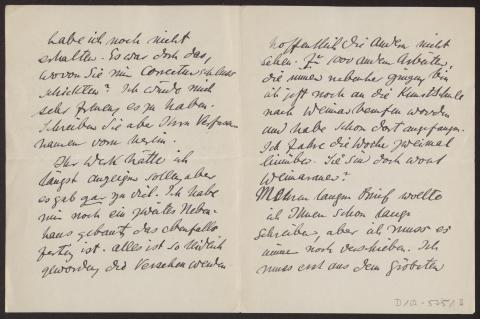 habe ich noch nicht
erhalten. Es war doch das,
wovon Sie mir
schickten? Ich würde mich
sehr freuen es zu haben.
Schreiben Sie aber Ihren
namen vorn herin.
Ihr Werk hätte ich
längst anzeigen sollen, aber
es gab gar zu viel. Ich habe
mir noch ein zweites Neben-
haus gebaut, das ebenfalls
fertig ist. alles ist so
geworden, die
hoffentlich die Andern nicht
sehen. Zu von andern Arbeiten,
die immer nebenher gingen, bin
ich jetzt noch an die Kunstschule
nach Weimar berufen worden
und habe schon dort angefangen.
Ich fahre die Woche zweimal
hinüber. Sie sind doch wohl
Weimaraner?
langen Brief wollte
ich Ihnen schon lange
schreiben, aber ich muss es
immer noch verschieben. Ich
muss erst aus dem Gröbsten